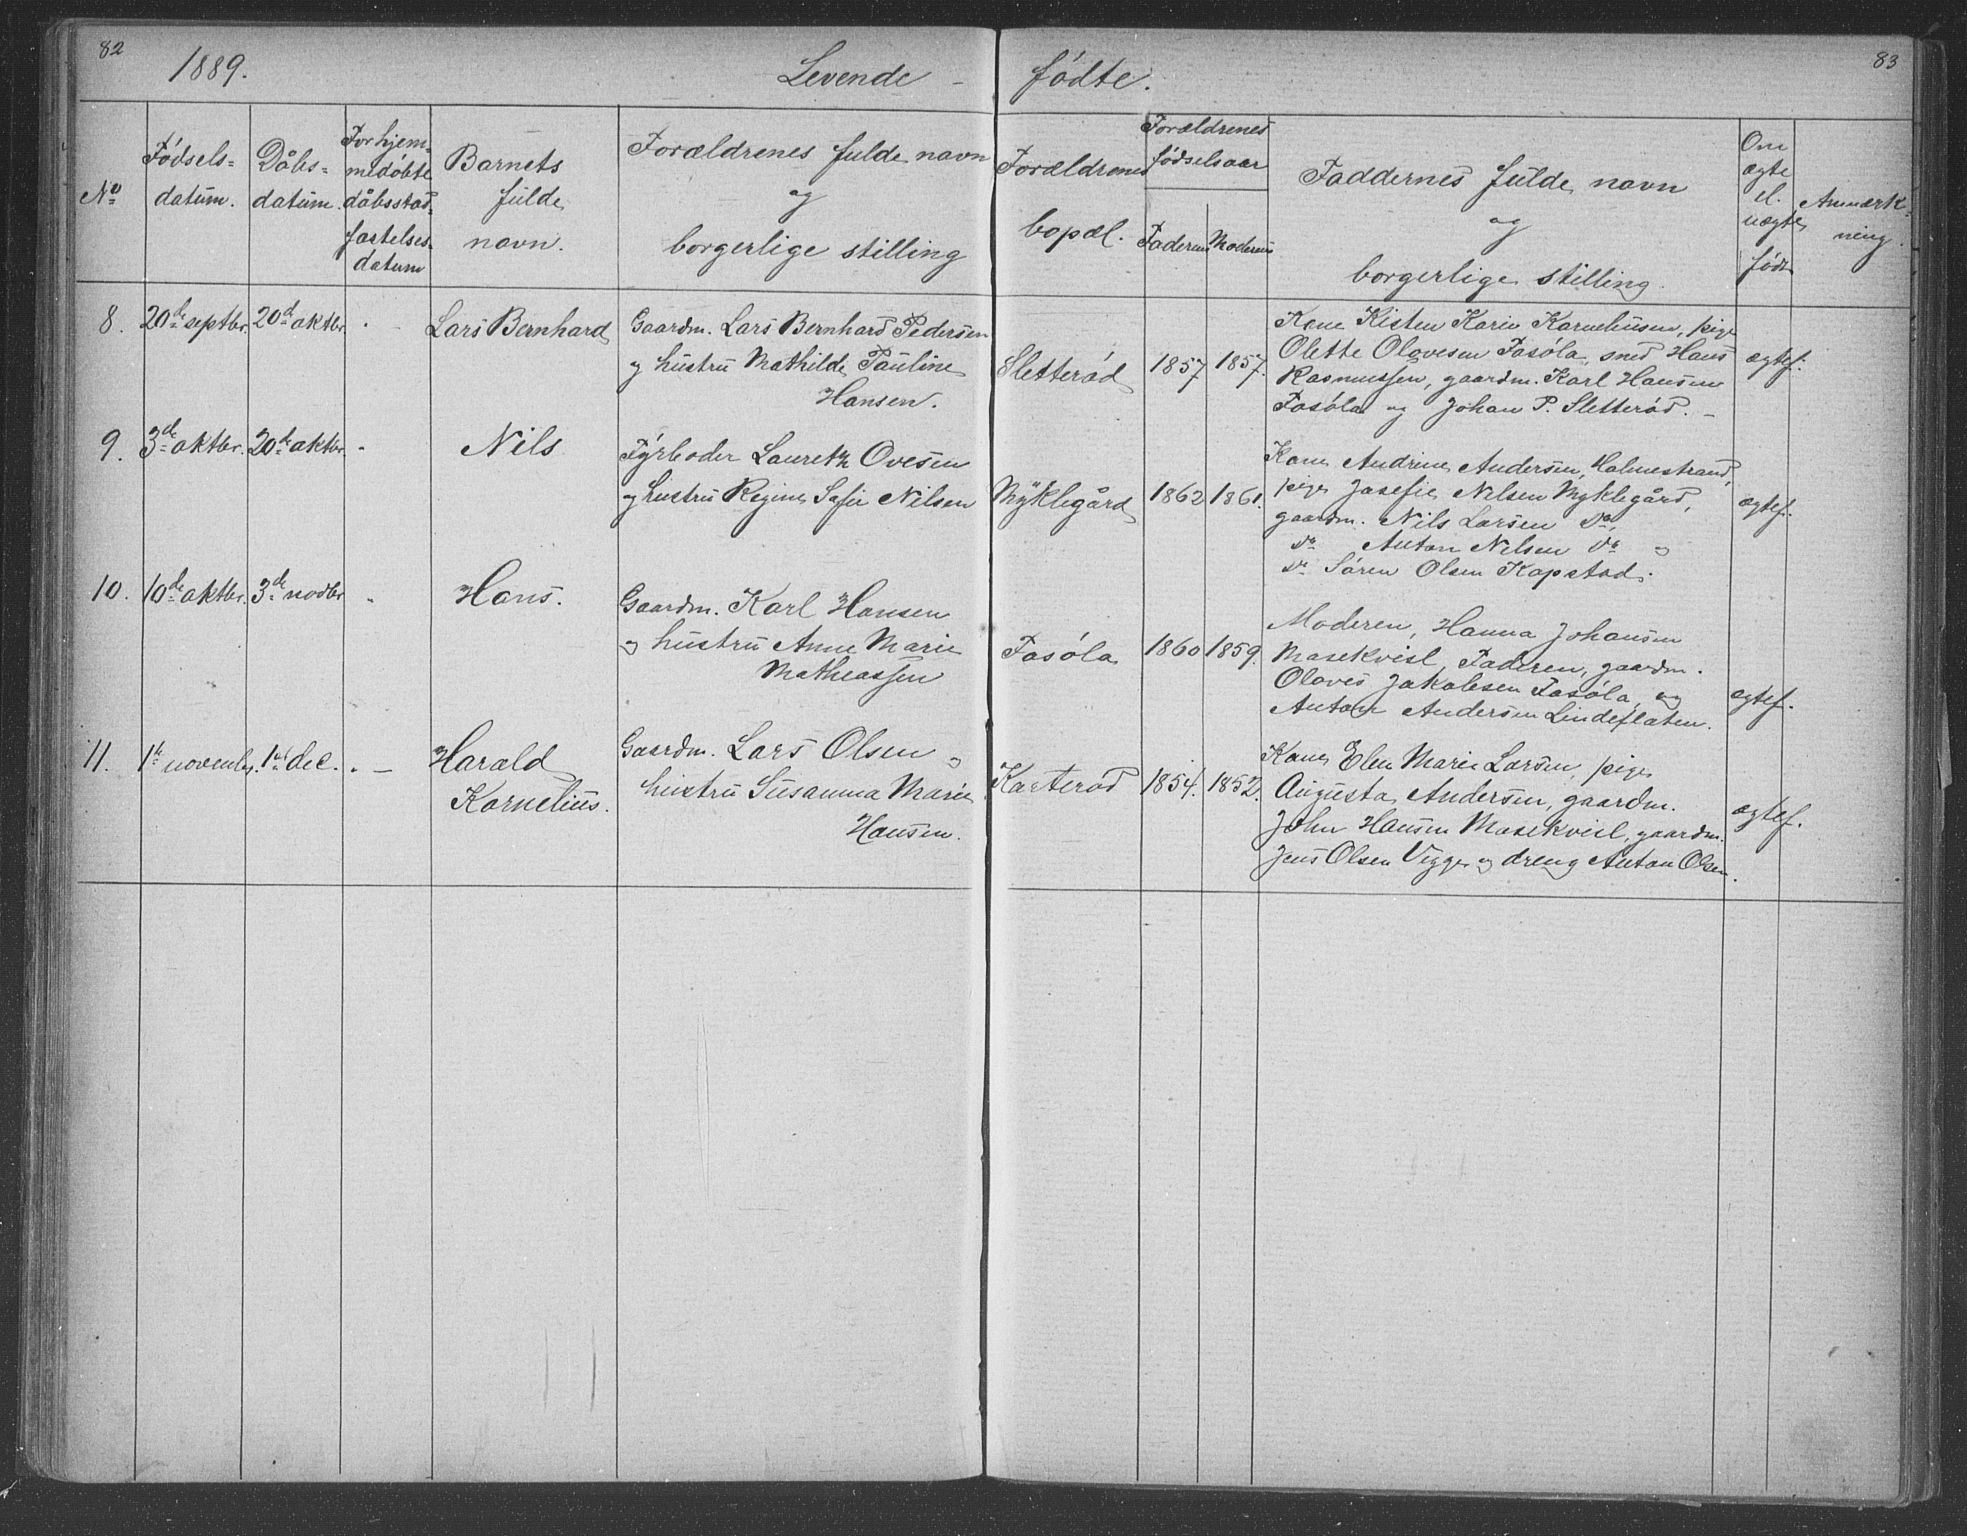 82
1889.
Levende - fødte.
83
No
Fødsels-
datum.
Dåbs-
datum.
For hjem-
medøbte
dåbsstad-
fæstelses-
datum
Barnets
fulde
navn.
Forældrenes fulde navn
og
borgerlige stilling
Forældrenes
bopæl.
Forældrenes
fødselsaar
Faderens
Moderens
Faddernes fulde navn
og
borgerlige stilling.
Om
ægte
el.
uægte
født
Anmærk-
ning.
8. 20de septbr. 20de oktbr. Lars Bernhard
Gaardm. Lars Bernhard Pedersen
og hustru Mathilde Pauline
Hansen.
Sletterød 1857 1857.
Kone Kisten Karie Korneliusen, pige
Olette Olovesen Fosøla, smed Hans
Rasmussen, gaardm. Karl Hansen
Fosøla og Johan P. Sletterød. -
ægtef.
9. 3de oktbr. 20de oktbr. Nils
Fyrbøder Lauretz Ovesen
og hustru Regine Sofie Nilsen
Myklegård 1862 1861.
Kone Andrine Andersen, Holmestrand,
pige Josefie Nilsen Myklegård,
gaardm. Nils Larsen do,
do Anton Nilsen do og
do Søren Olsen Kopstad.
ægtef.
10. 10de oktbr. 3de novbr. Hans.
Gaardm. Karl Hansen
og hustru Anne Marie
Matheassen
Fosøla 1860 1859.
Moderen, Hanna Johansen
Masekvisl, Faderen, gaardm.
Oloves Jakobsen Fosøla, og
Anton Andersen Lindeflaten.
ægtef.
11. 1te novenbr. 1ste dec. . - Harald
Kornelius.
Gaardm. Lars Olsen og
hustru Susanna Marie
Hansen.
Korterød 1854. 1852.
Kone Elen Marie Larsen, pige
Augusta Andersen, gaardm.
John Hansen Masekvisl, gaardm.
Jens Olsen Vigge og dreng Anton Olsen.
ægtef.